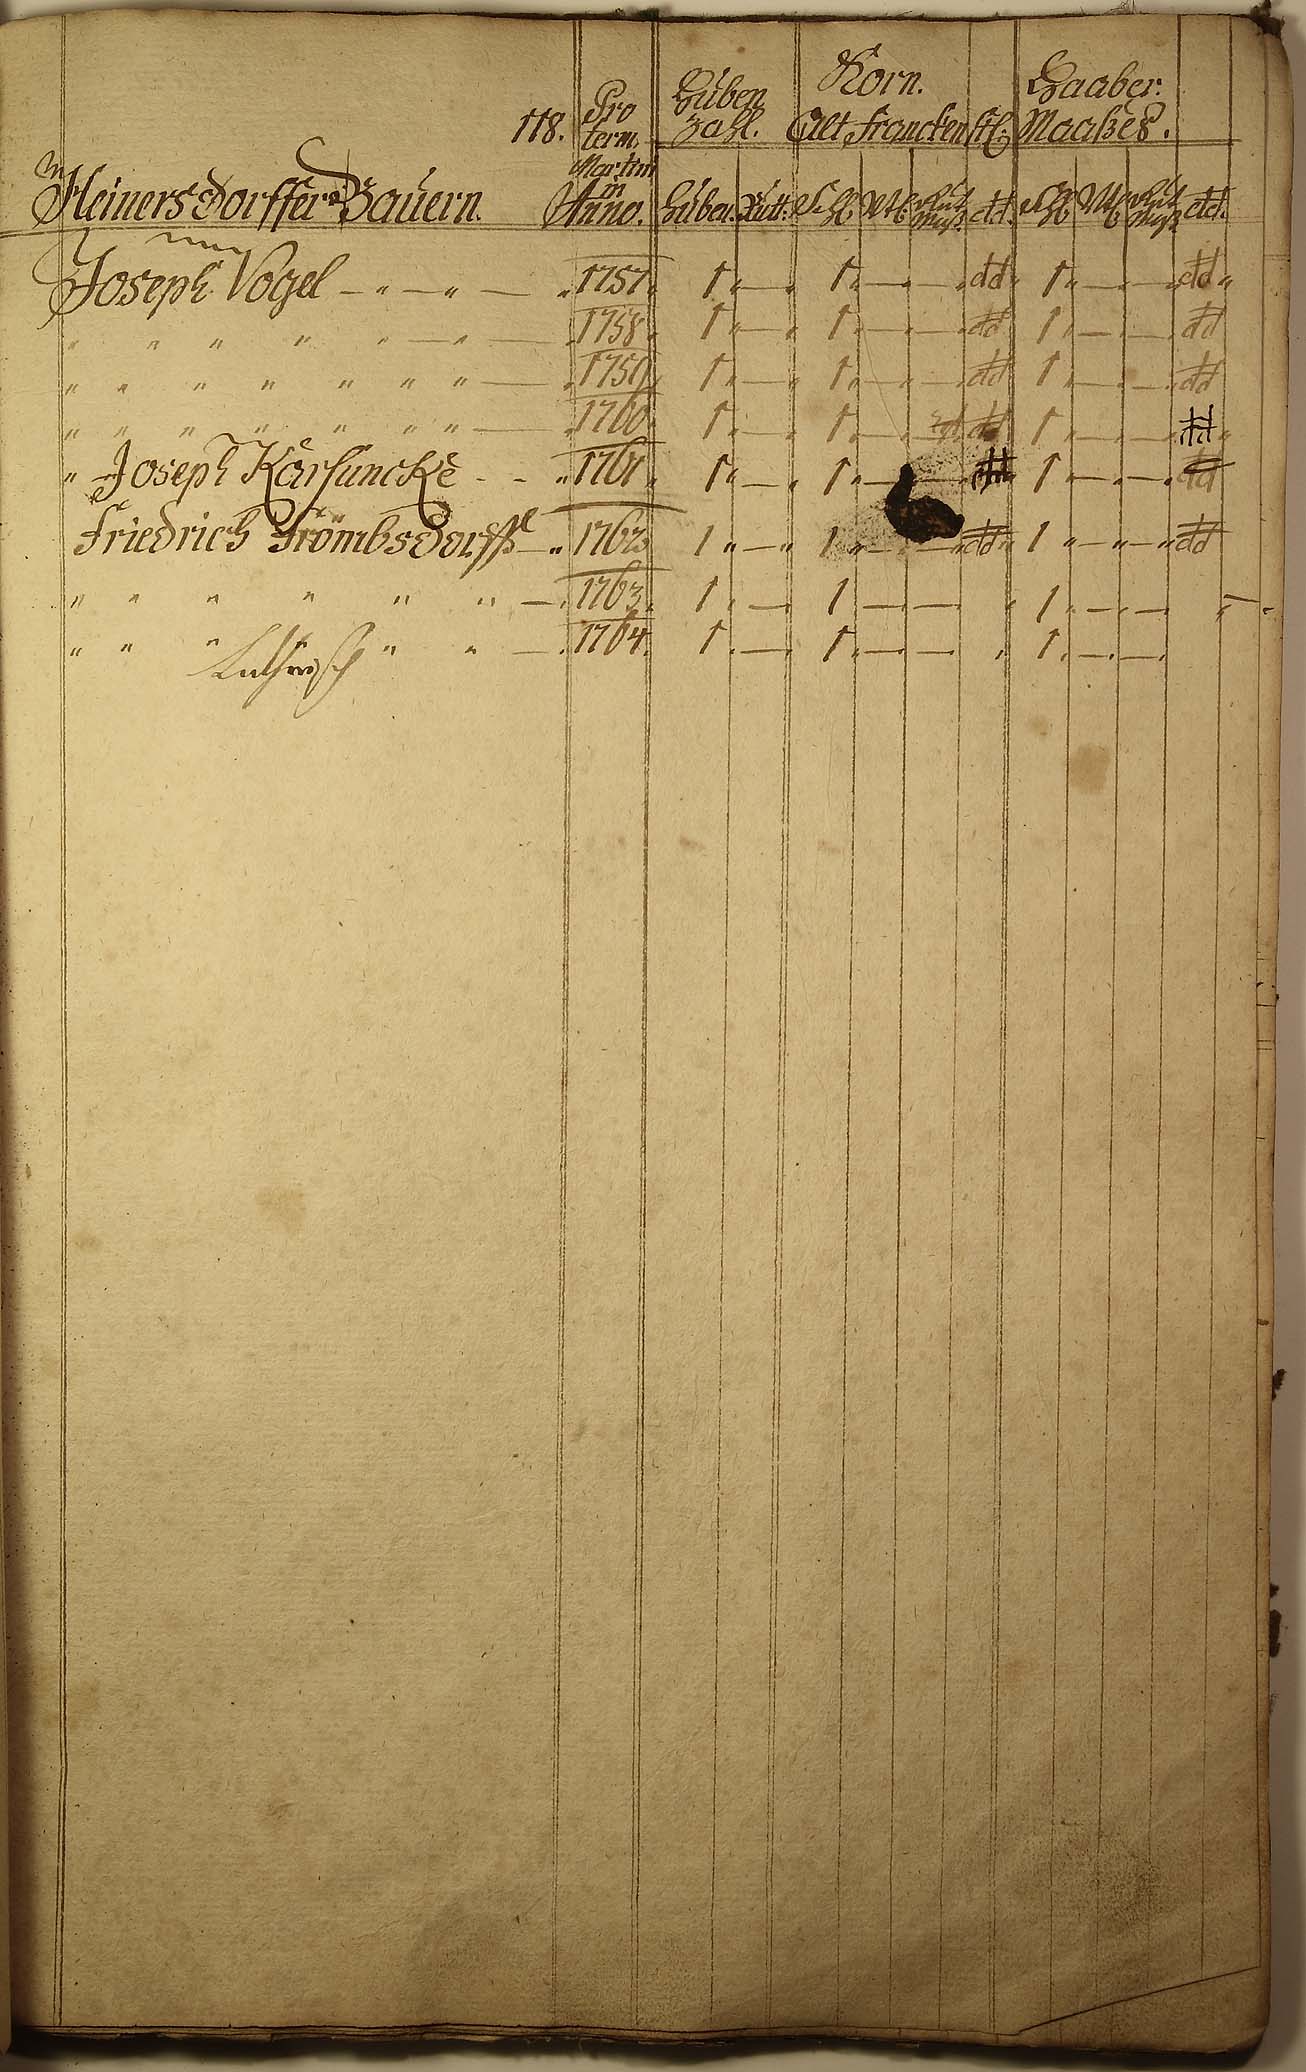 118. Pro term. Martini in Anno. Huben Zahl. Korn. Haaber.
Alt Franckenst. Maaßes.
Heinersdorffer Bauern. Huben. Rutt. Schl. Mtz. dd. Schl. Mtz. dd.
Joseph Vogel — " — " — " 1757 " 1 " — " 1 " — " — " dd " 1 " — " — " dd "
" " " " " — " — 1758 1 " — " 1 " — " — " dd 1 " — " — " dd
" " " " " " " — 1759 1 " — " 1 " — " — dd 1 " — " — " dd
" " " " " " " — 1760 1 " — " 1 " — " dd 1 " — " — " dd "
" Joseph Karfuncke - - " 1761 " 1 " — " 1 " — " dd 1 " — " — " dd
Friedrich Frömbsdorff — " 1762 1 " — " 1 " — " — " dd " 1 " — " — " dd
" " " " " " — 1763 1 " — 1 — — " 1 " — " —
" " " " " " — 1764 1 " — 1 " — — 1 " — " —